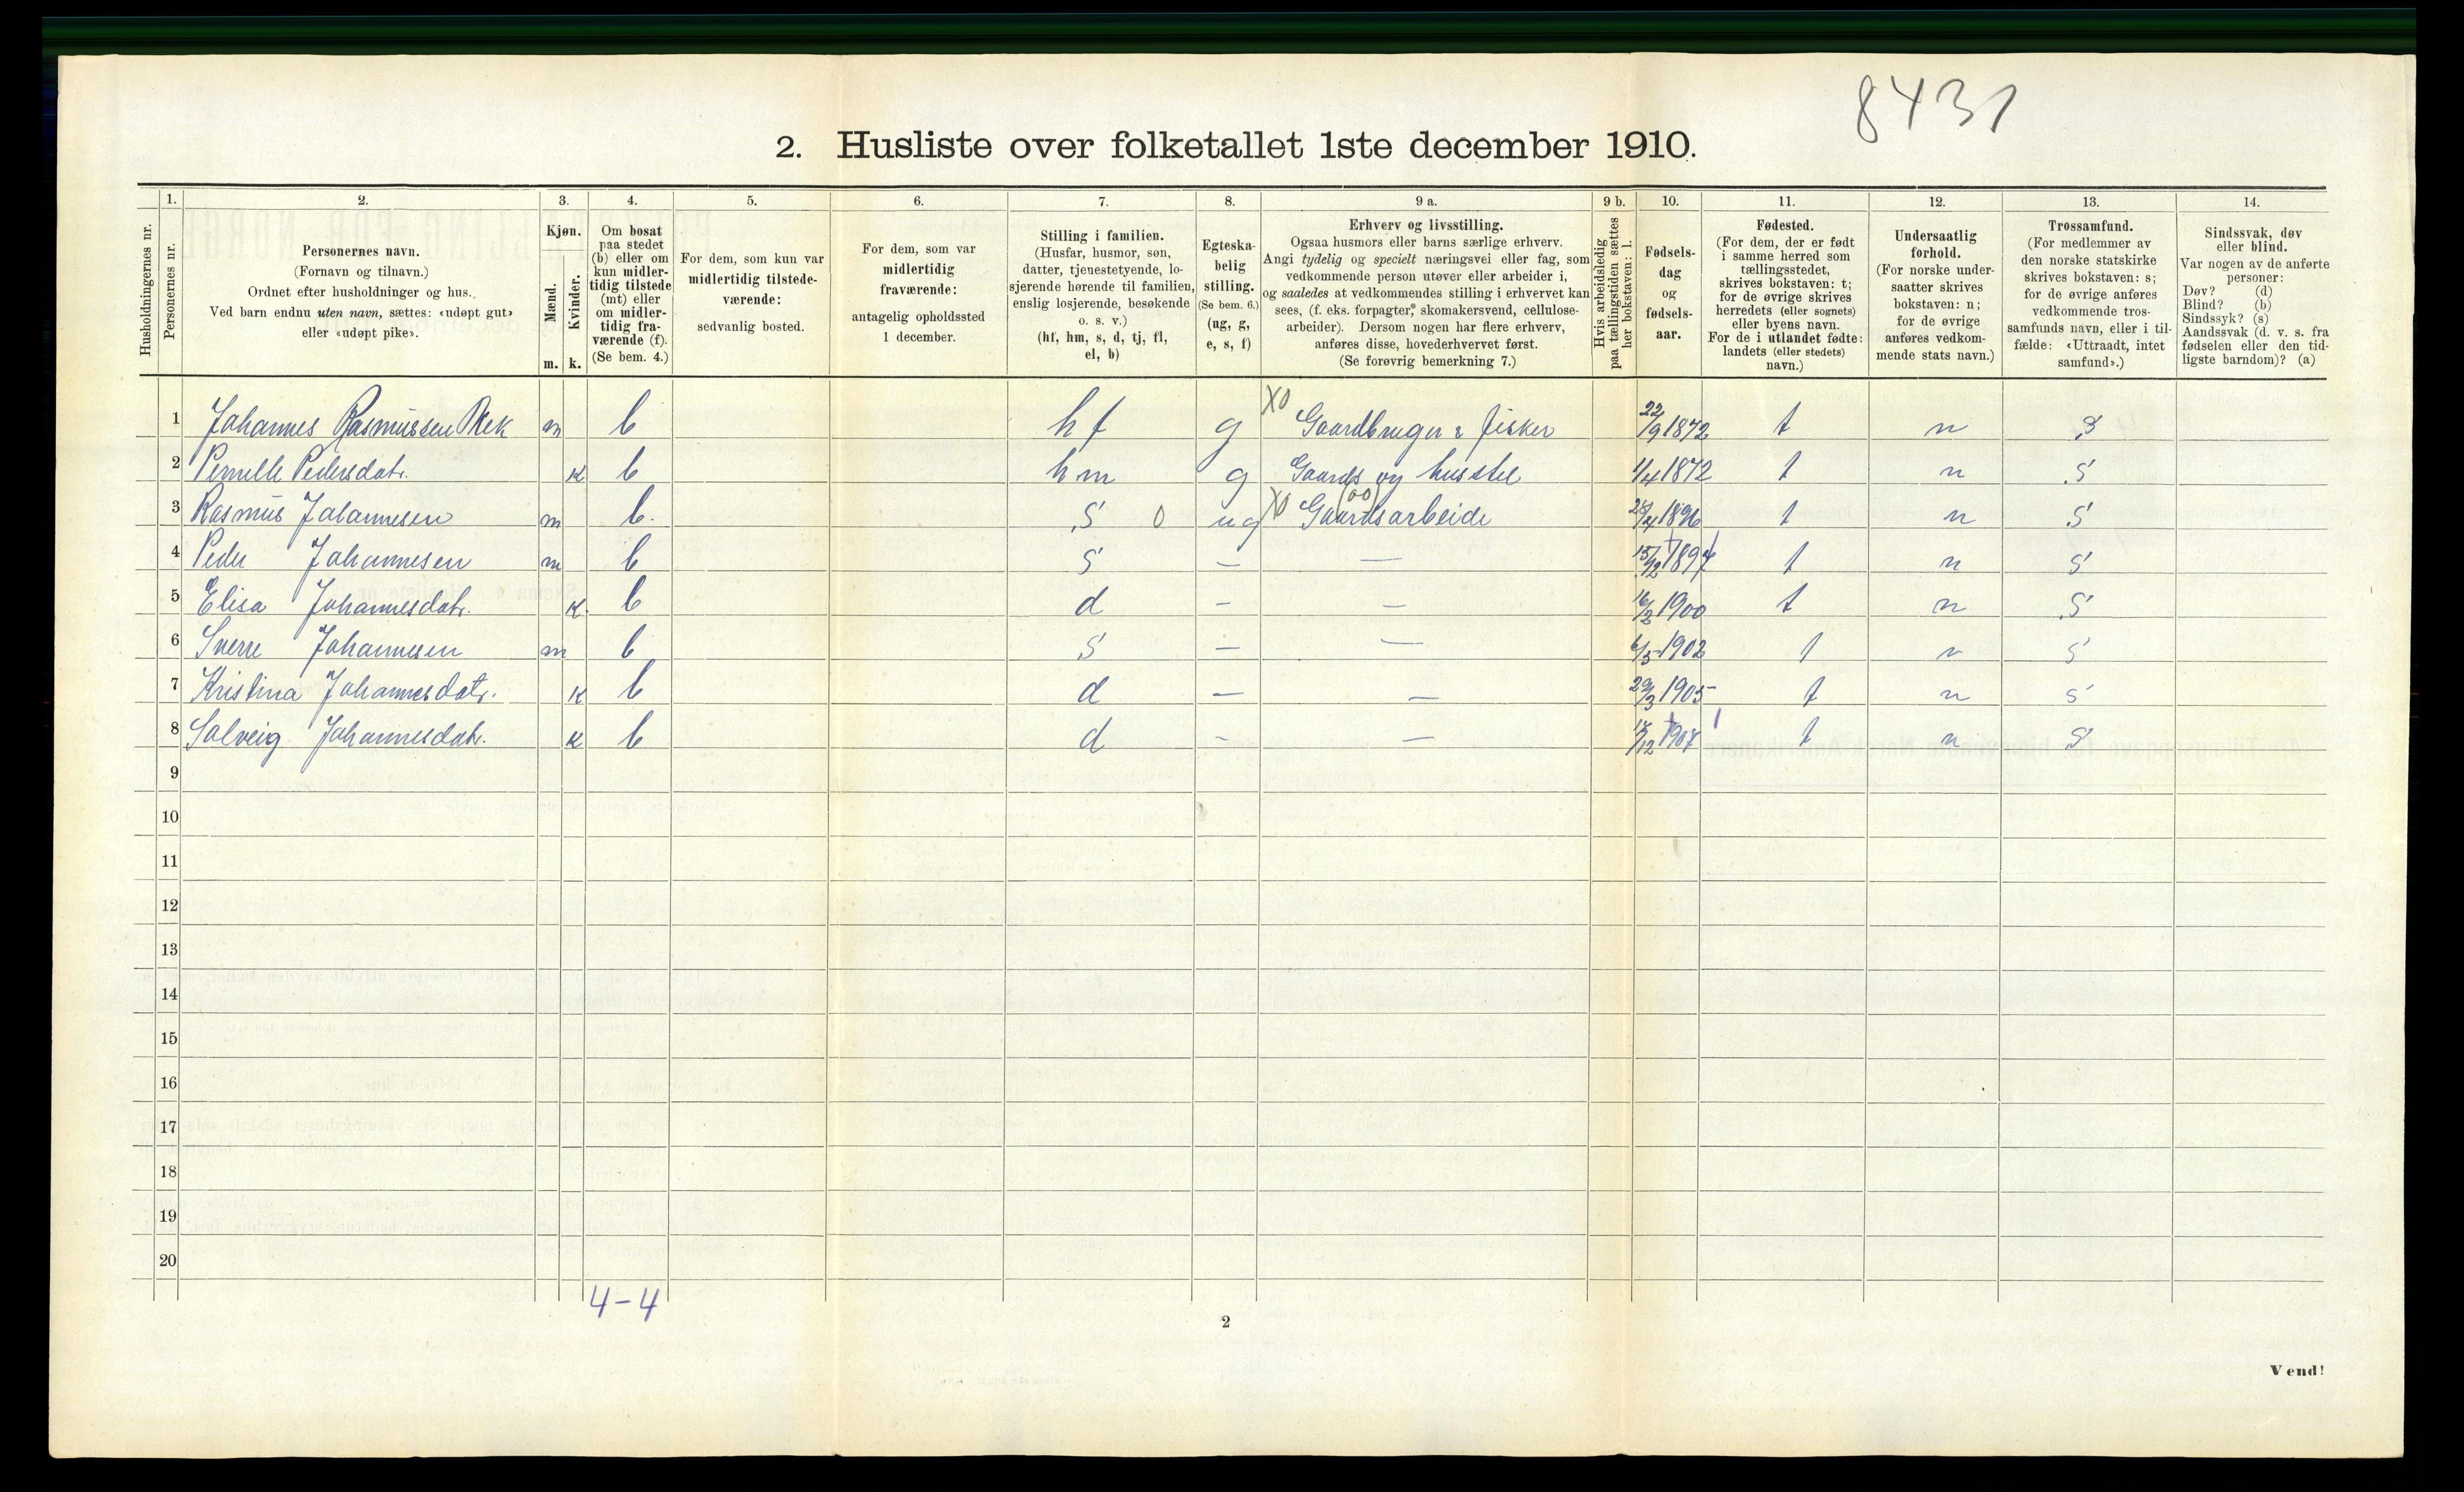 8431
2. Husliste over folketallet 1ste december 1910.
1. 2. 3. 4. 5. 6. 7. 8. 9 a. 9 b. 10. 11. 12. 13. 14.
Husholdningernes nr.
Personernes nr.
Personernes navn.
(Fornavn og tilnavn.)
Ordnet efter husholdninger og hus.
Ved barn endnu uten navn, sættes: «udøpt gut»
eller «udøpt pike».
Kjøn.
Mænd.
m.
Kvinder.
k.
Om bosat
paa stedet
(b) eller om
kun midler-
tidig tilstede
(mt) eller
om midler-
tidig fra-
værende (f).
(Se bem. 4.)
For dem, som kun var
midlertidig tilstede-
værende:
sedvanlig bosted.
For dem, som var
midlertidig
fraværende:
antagelig opholdssted
1 december.
Stilling i familien.
(Husfar, husmor, søn,
datter, tjenestetyende, lo-
sjerende hørende til familien,
enslig losjerende, besøkende
o. s. v.)
(hf, hm, s, d, tj, fl,
el, b)
Egteska-
belig
stilling.
(Se bem. 6.)
(ug, g,
e, s, f)
Erhverv og livsstilling.
Ogsaa husmors eller barns særlige erhverv.
Angi tydelig og specielt næringsvei eller fag, som
vedkommende person utøver eller arbeider i,
og saaledes at vedkommendes stilling i erhvervet kan
sees, (f. eks. forpagter, skomakersvend, cellulose-
arbeider). Dersom nogen har flere erhverv,
anføres disse, hovederhvervet først.
(Se forøvrig bemerkning 7.)
Hvis arbeidsledig
paa tællingstiden sættes
her bokstaven: l.
Fødsels-
dag
og
fødsels-
aar.
Fødested.
(For dem, der er født
i samme herred som
tællingsstedet,
skrives bokstaven: t;
for de øvrige skrives
herredets (eller sognets)
eller byens navn.
For de i utlandet fødte:
landets (eller stedets)
navn.)
Undersaatlig
forhold.
(For norske under-
saatter skrives
bokstaven: n;
for de øvrige
anføres vedkom-
mende stats navn.)
Trossamfund.
(For medlemmer av
den norske statskirke
skrives bokstaven: s;
for de øvrige anføres
vedkommende tros-
samfunds navn, eller i til-
fælde: «Uttraadt, intet
samfund».)
Sindssvak, døv
eller blind.
Var nogen av de anførte
personer:
Døv? (d)
Blind? (b)
Sindssyk? (s)
Aandssvak (d. v. s. fra
fødselen eller den tid-
ligste barndom)? (a)
1 Johannes Rasmussen m b hf g X0 Gaardbruger & fisker 22/9 1872 t n s
2 Pernille Pedersdatr. k b hm g Gaards og husstel 1/4 1872 t n s
3 Rasmus Johannesen m b. s 0 ug X0 (00) Gaardsarbeide 1896 t n s
4 Peder Johannesen m b s — — 15/12 1897 t n s
5 Elisa Johannesdatr. k. b d — — 16/2 1900 t n s
6 Sverre Johannesen m b s — — 6/5 1902 t n s
7 Kristina Johannesdatr. k b d — — 29/3 1905 t n s
8 Solveig Johannesdatr. k b d — — 17/12 1907 t n s
9
10
11
12
13
14
15
16
17
18
19
20
4-4
2
Vend!